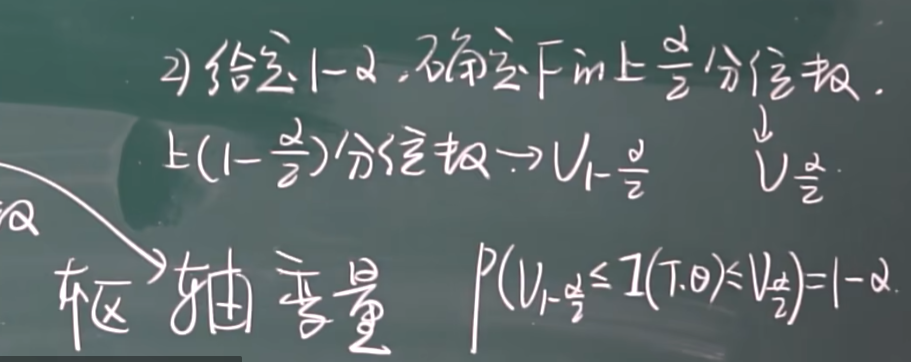 2) 给定1-α,确定F的上α/2分位数.
上(1-α/2)分位数→V_{1-α/2} ↓ V_{α/2}.
枢轴变量 P(V_{1-α/2}≤I(T.θ)≤V_{α/2})=1-α.